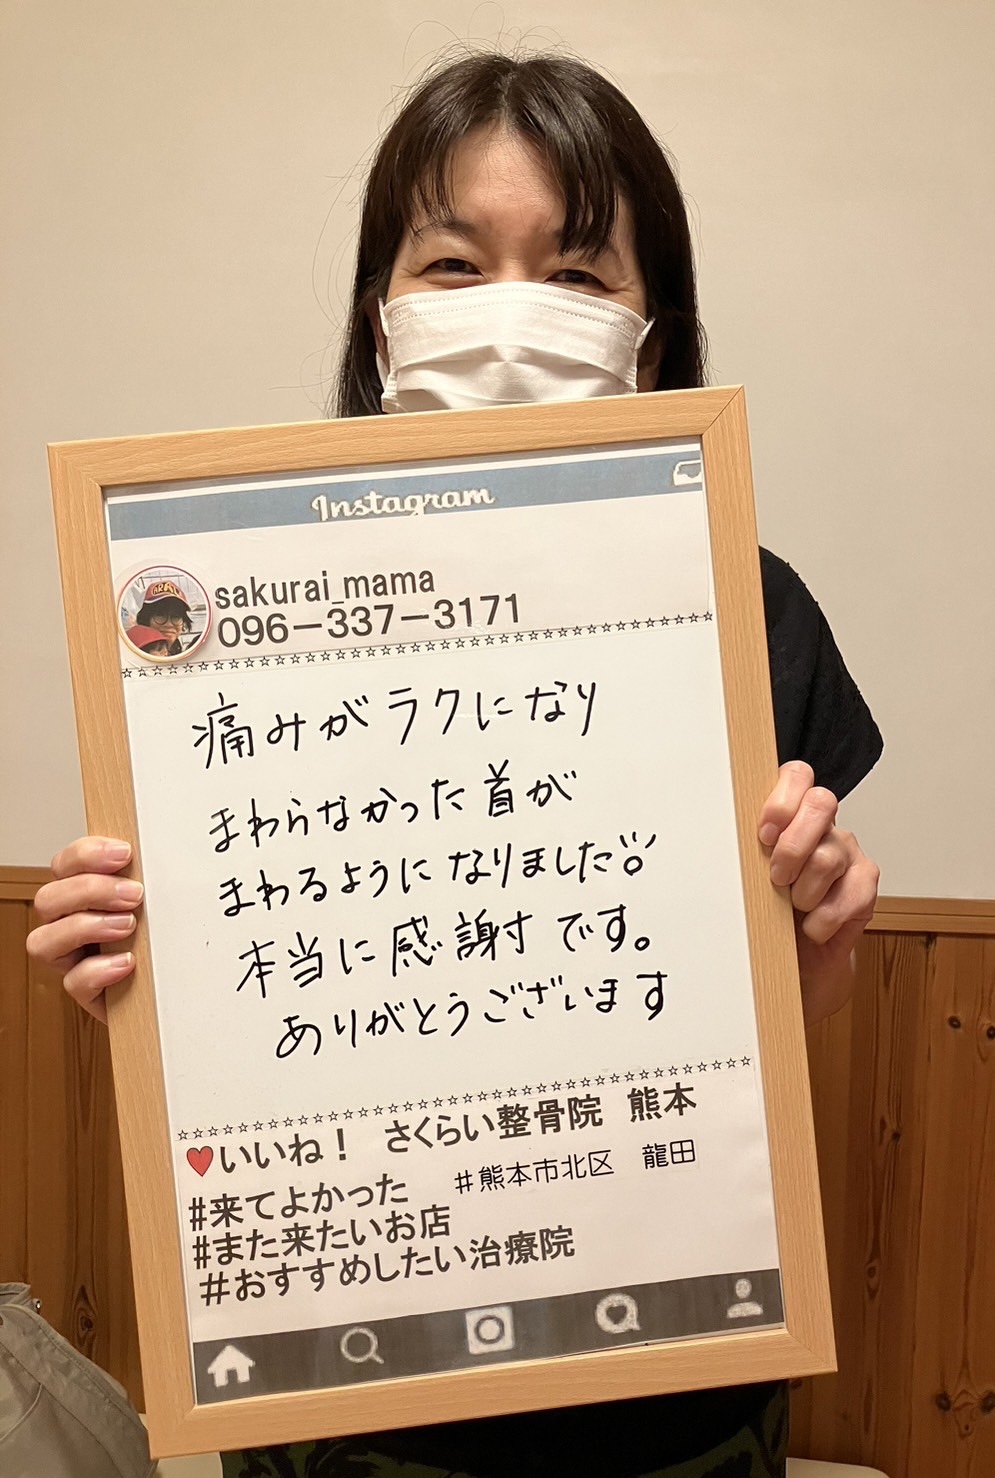 Instagram
sakurai_mama
096-337-3171
☆☆☆☆☆☆☆☆☆☆☆☆☆☆☆☆☆☆☆☆☆☆☆☆☆☆☆☆☆☆☆☆☆☆☆☆☆☆☆
痛みがラクになり
まわらなかった首が
まわるようになりました
本当に感謝です。
ありがとうございます
☆☆☆☆☆☆☆☆☆☆☆☆☆☆☆☆☆☆☆☆☆☆☆☆☆☆☆☆☆☆☆☆☆☆☆☆☆☆☆
♥いいね！ さくらい整骨院 熊本
#来てよかった #熊本市北区 龍田
#また来たいお店
#おすすめしたい治療院